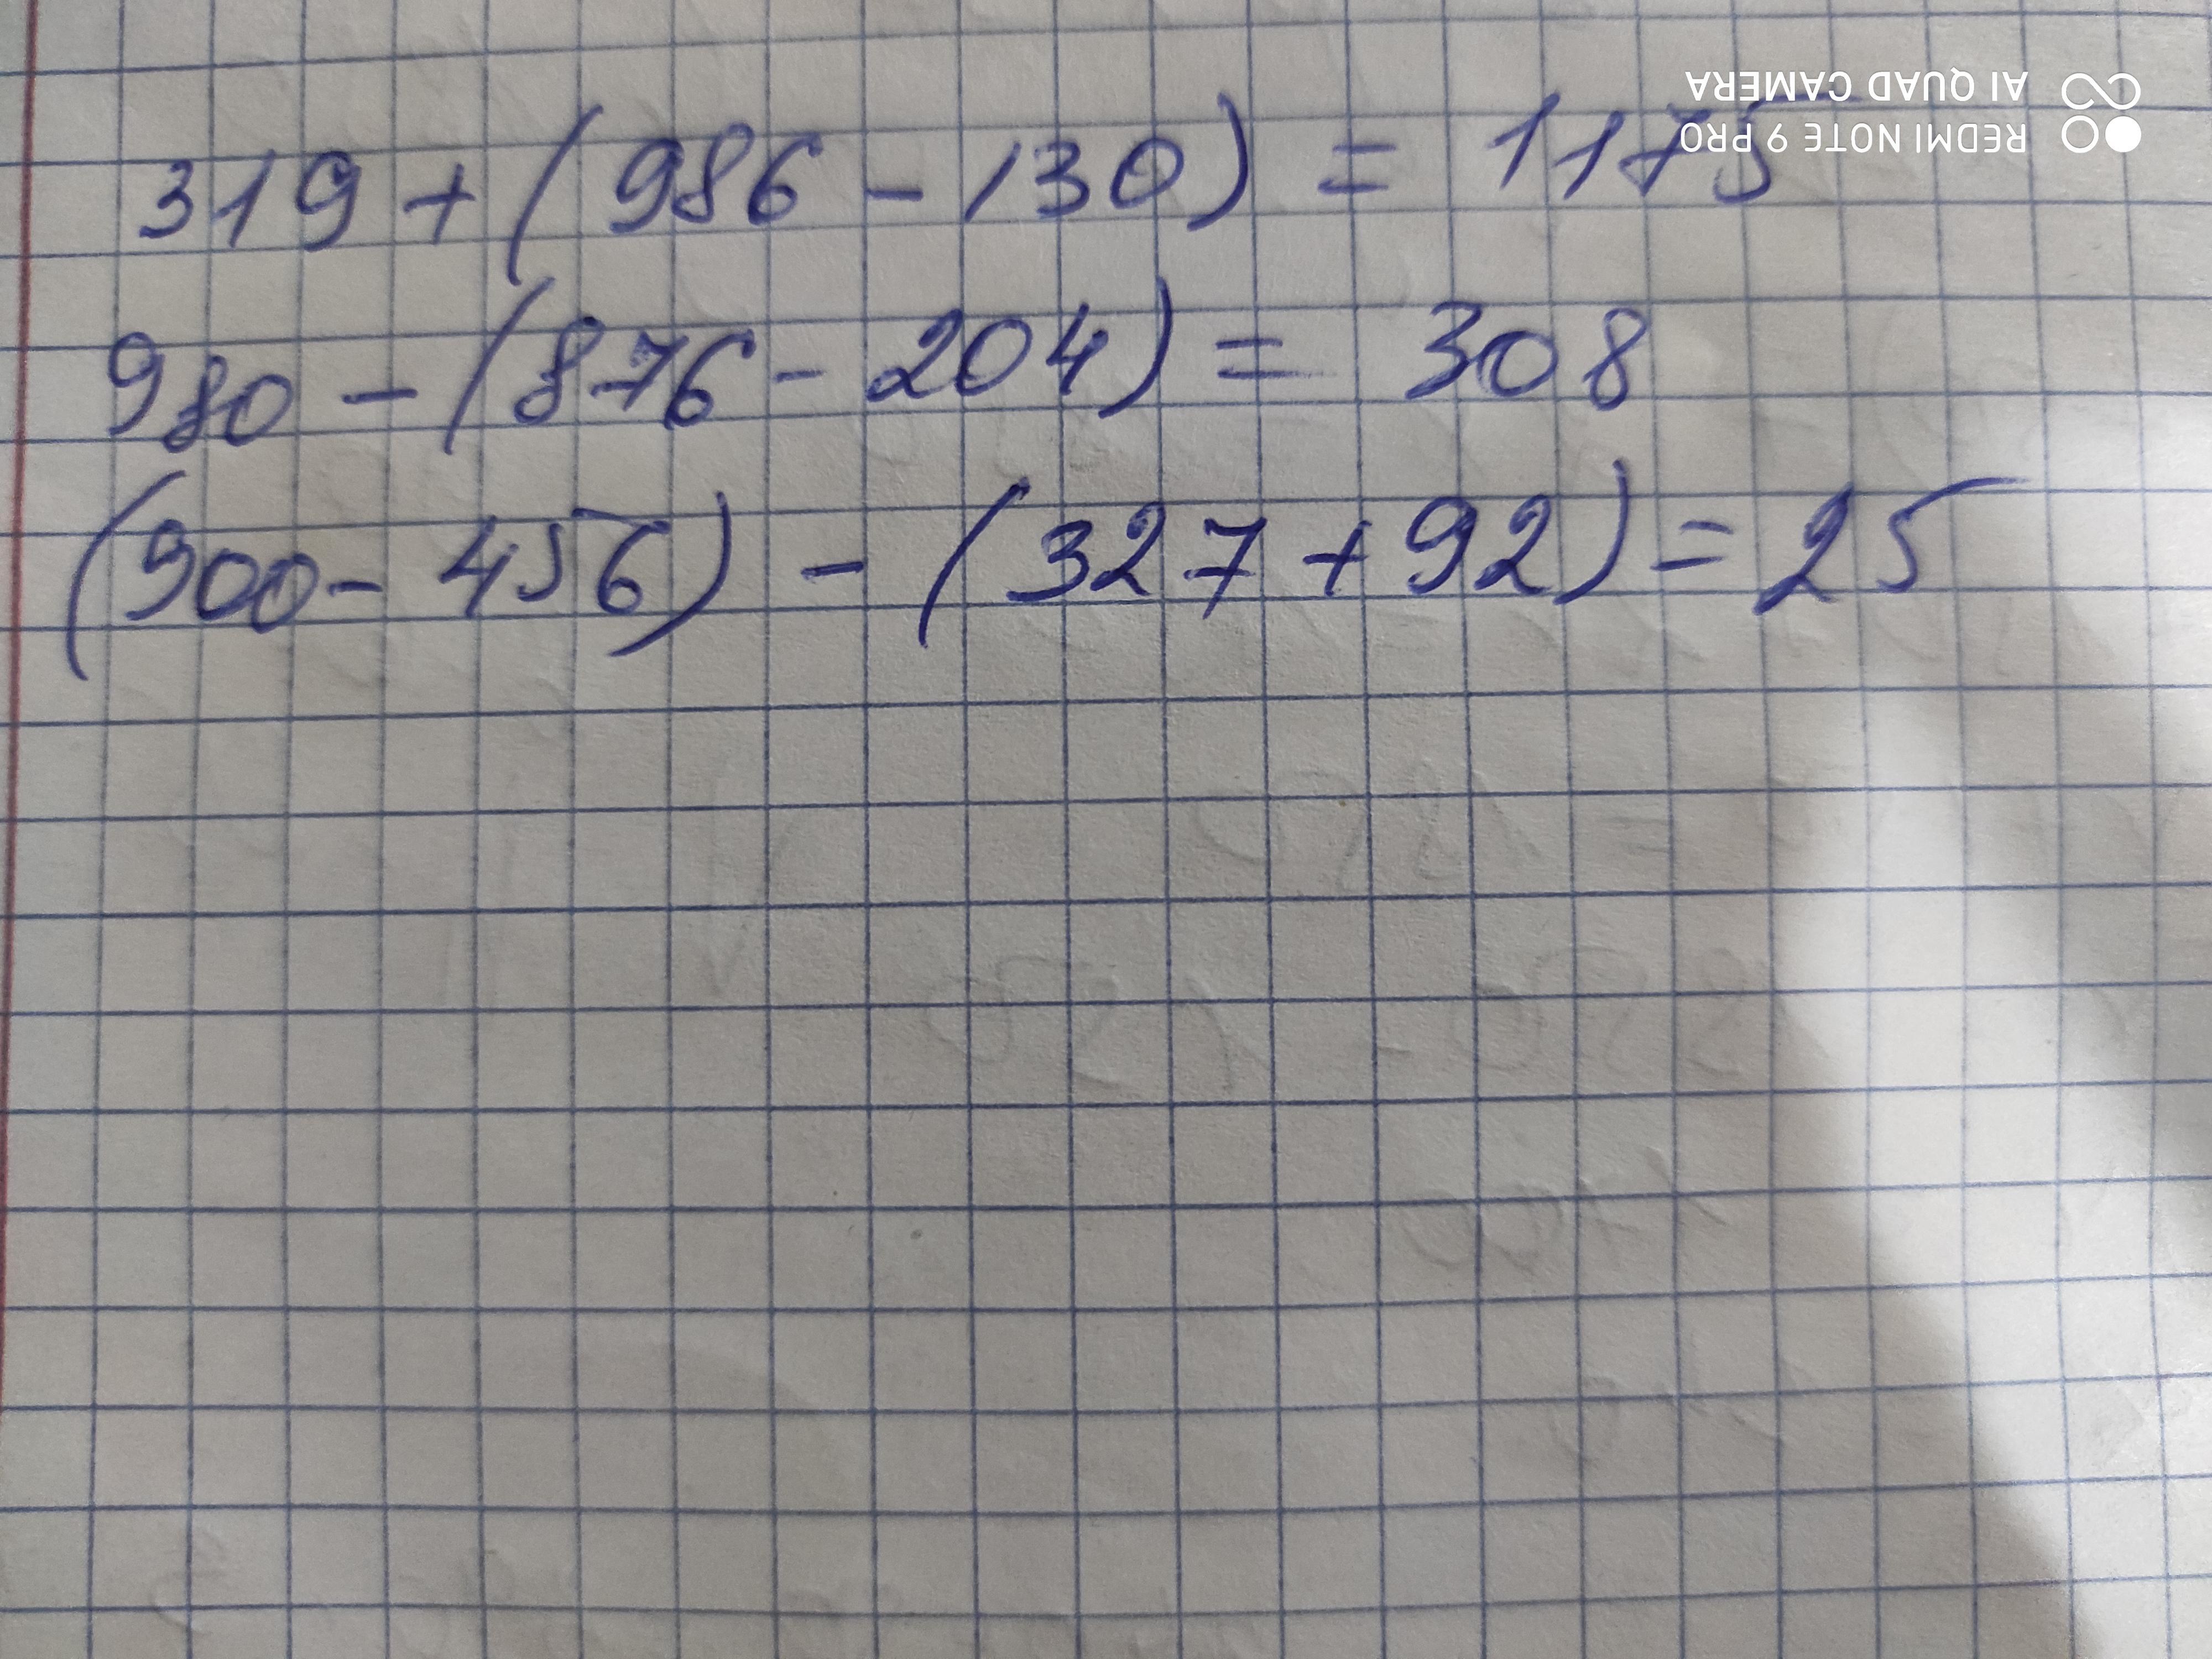 319 + (986 - 130) = 1175
980 - (876 - 204) = 308
(900 - 456) - (327 + 92) = 25
REDMI NOTE 9 PRO
AI QUAD CAMERA